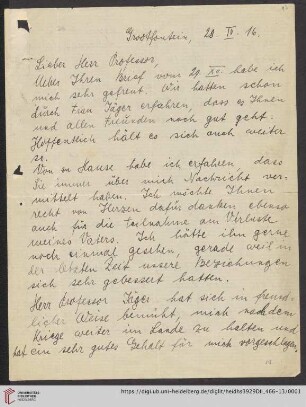 Grootfontein, 28 IV. 16.
Lieber Herr Professor,
Ueber Ihren Brief vom 29 XII. habe ich
mich sehr gefreut. Wir hatten schon
durch Frau Jäger erfahren, dass es Ihnen
und allen Freunden noch gut geht.
Hoffentlich hält es sich auch weiter
so.
Von zu Hause habe ich erfahren dass
Sie immer über mich Nachricht ver-
mittelt haben. Ich möchte Ihnen
recht von Herzen dafür danken ebenso
auch für die Teilnahme am Verluste
meines Vaters. Ich hätte ihn gerne
noch einmal gesehen, gerade weil in
der letzten Zeit unsere Beziehungen
sich sehr gebessert hatten.
Herr Professor Jäger hat sich in freund-
licher Weise bemüht, mich nach dem
Kriege weiter im Lande zu halten und
hat ein sehr gutes Gehalt für mich vorgeschlagen
UNIVERSITÄTS-
BIBLIOTHEK
HEIDELBERG
https://digi.ub.uni-heidelberg.de/diglit/heidhs3929DI_466-13/0001